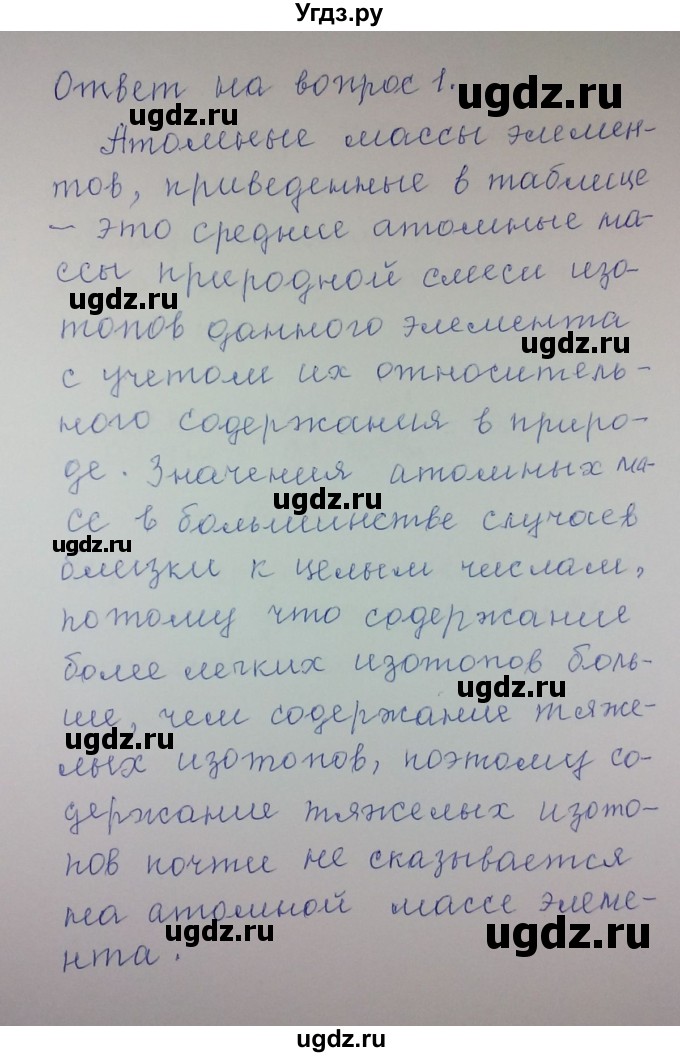 Угдз.ру
Ответ на вопрос 1.
ugdz.ru
ugdz.ru
Атомные массы элемен-
тов, приведенные в таблице
ugdz.ru
— это средние атомные ма-
ссы природной смеси изо-
ugdz.ru
топов данного элемента
ugdz.ru
с учетом их относитель-
ного содержания в приро-
де. Значения атомных ма-
ugdz.ru
сс в большинстве случаев
ugdz.ru
близки к целым числам,
потому что содержание
более легких изотопов боль-
ugdz.ru
ше, чем содержание тяже-
ugdz.ru
лых изотопов, поэтому со-
держание тяжелых изото-
пов почти не сказывается
на атомной массе элеме-
ugdz.ru
ugdz.ru
нта.
ugdz.ru